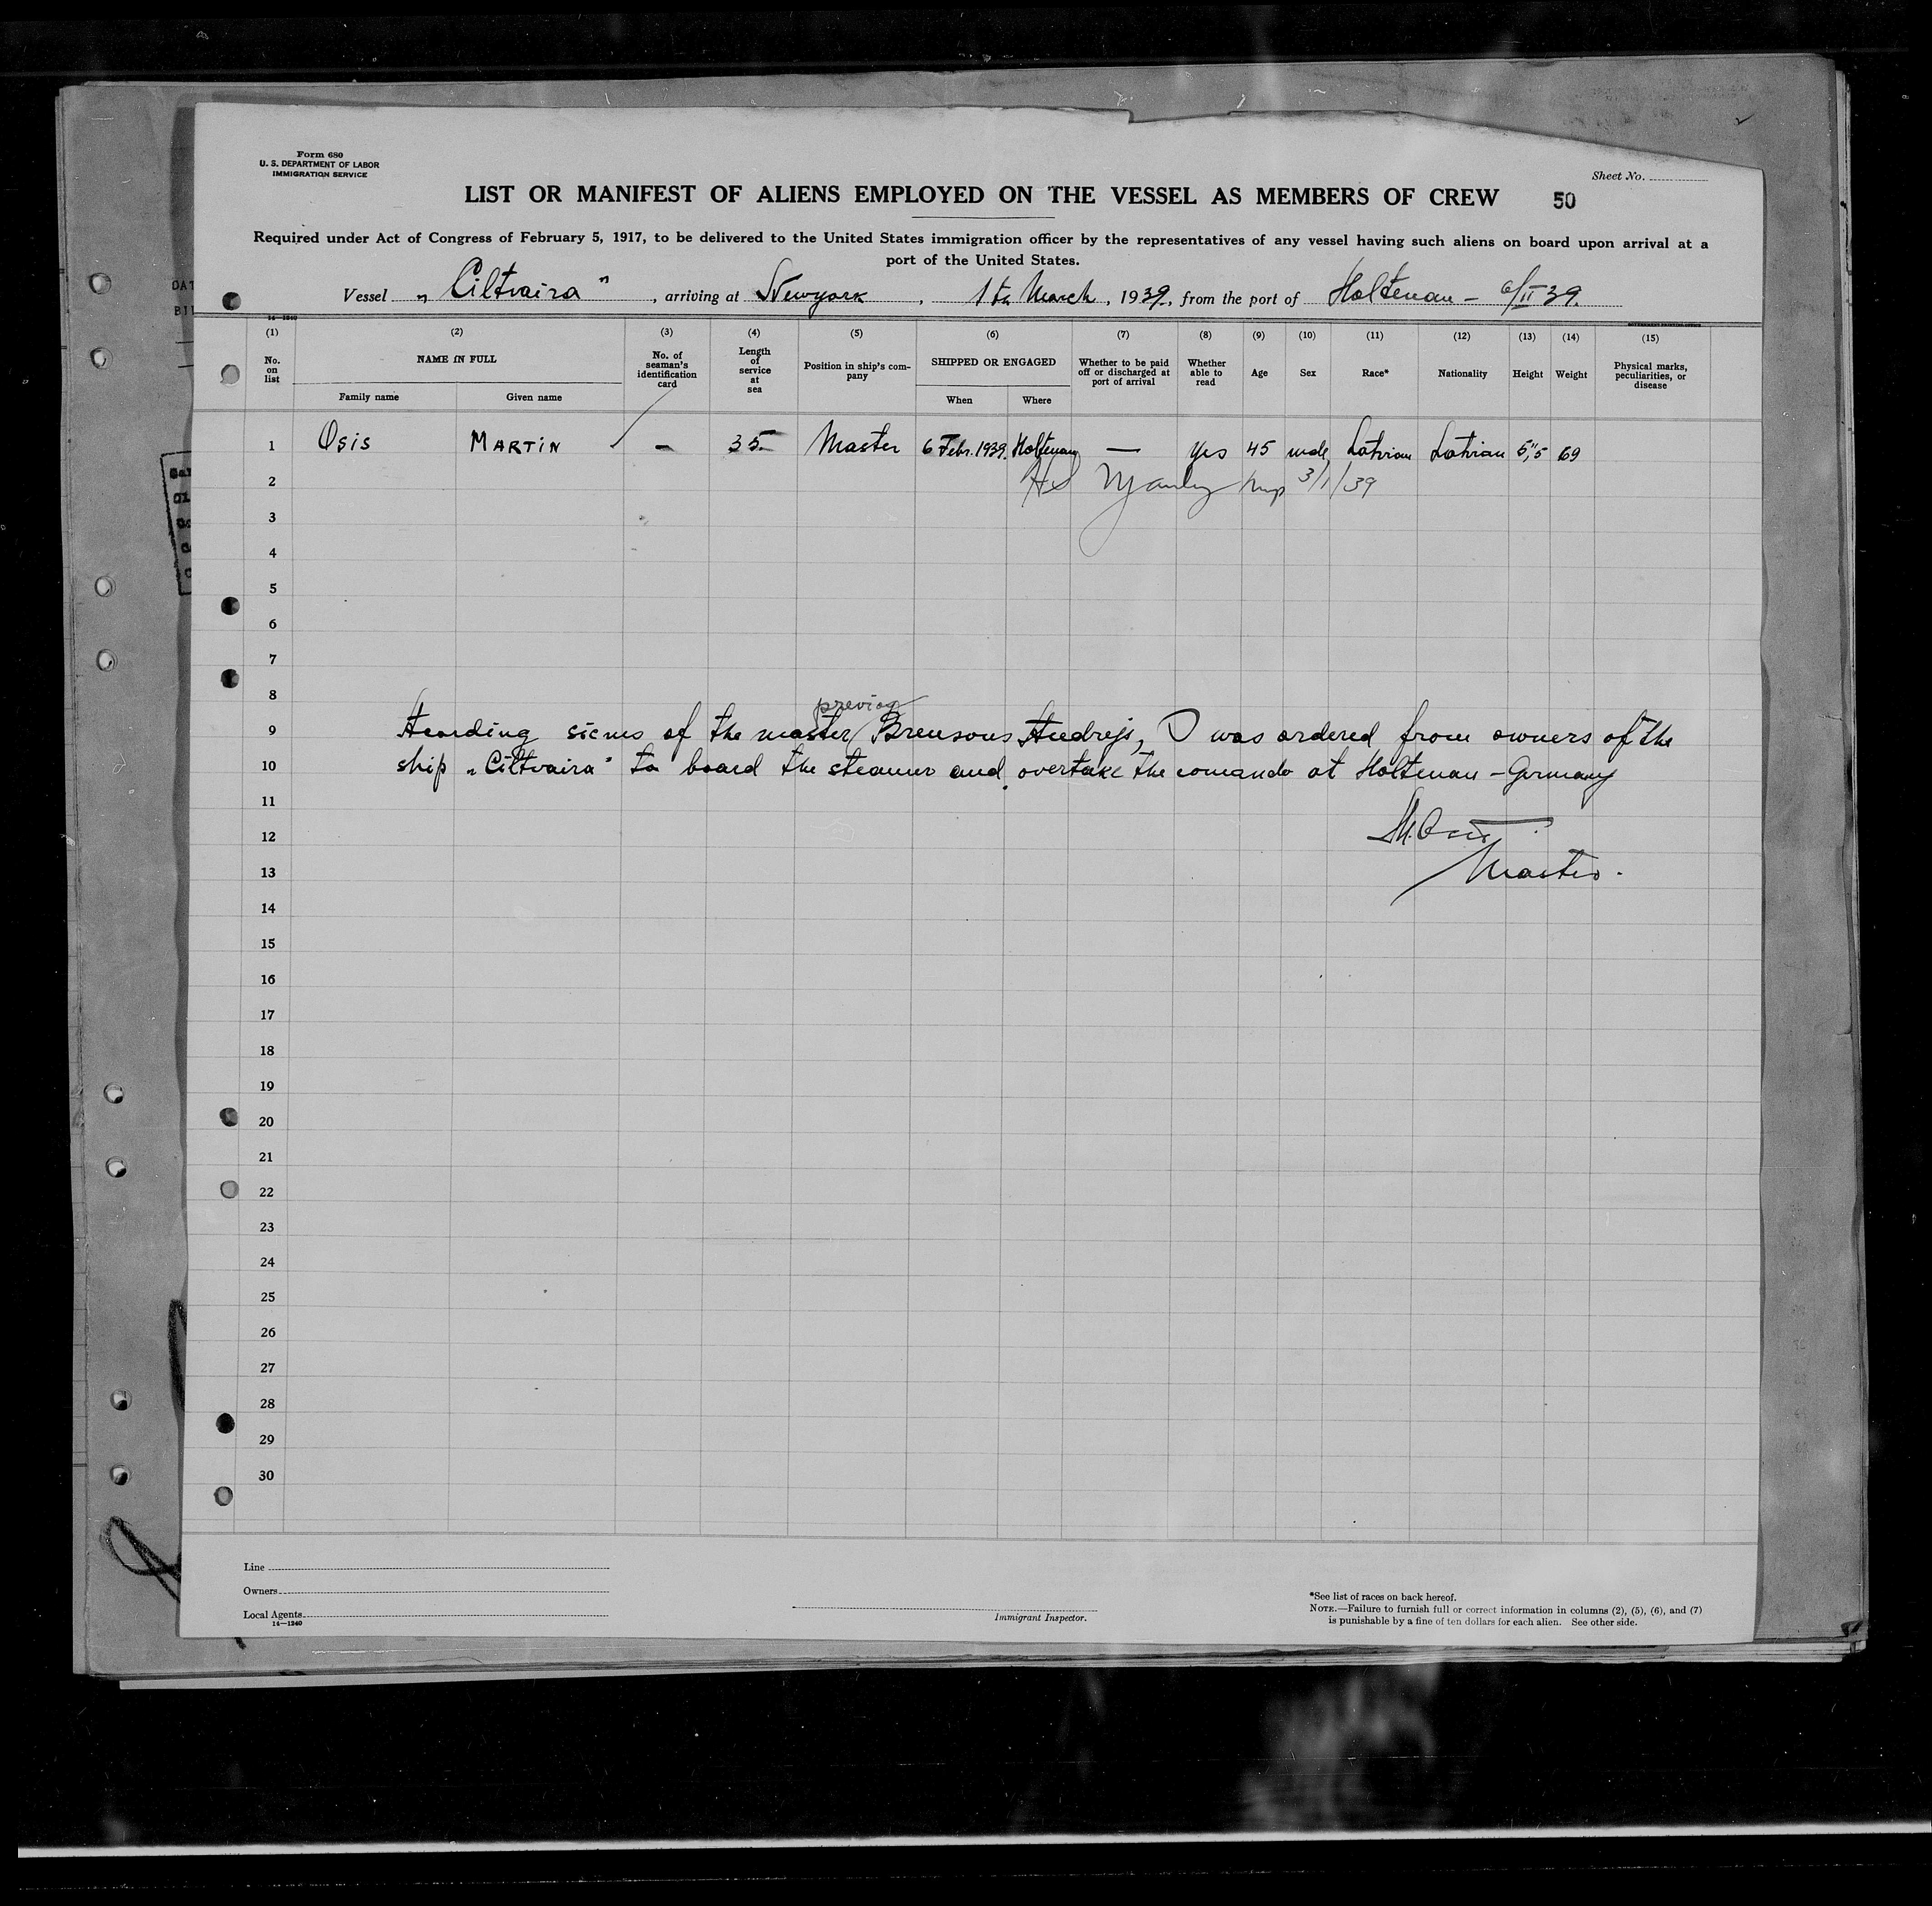 Form 680
U. S. DEPARTMENT OF LABOR
IMMIGRATION SERVICE
Sheet No.
LIST OR MANIFEST OF ALIENS EMPLOYED ON THE VESSEL AS MEMBERS OF CREW 50
Required under Act of Congress of February 5, 1917, to be delivered to the United States immigration officer by the representatives of any vessel having such aliens on board upon arrival at a
port of the United States.
Vessel „Ciltvaira", arriving at Newyork, March, 1939, from the port of Holtenau – 6/II 39.
14—1240
GOVERNMENT PRINTING OFFICE
(1) (2) (3) (4) (5) (6) (7) (8) (9) (10) (11) (12) (13) (14) (15)
No. on list
NAME IN FULL
Family name
Given name
No. of seaman's identification card
Length of service at sea
Position in ship's company
SHIPPED OR ENGAGED
When
Where
Whether to be paid off or discharged at port of arrival
Whether able to read
Age
Sex
Race*
Nationality
Height
Weight
Physical marks, peculiarities, or disease
1 Osis MARTIN — 35 Master 6 Febr. 1939. Holtenau — Yes 45 male Latvian Latvian 5,"5 69
2 3/1/39
3
4
5
6
7
8
previous
9 of the master Brensons Andrejs, I was ordered from owners of the
10 ship „Ciltvaira" to board the steamer and overtake the comando at Holtenau – Germany
11
12 M. Osis
13 Master.
14
15
16
17
18
19
20
21
22
23
24
25
26
27
28
29
30
Line
Owners
Local Agents
14—1240
Immigrant Inspector.
*See list of races on back hereof.
NOTE.—Failure to furnish full or correct information in columns (2), (5), (6), and (7)
is punishable by a fine of ten dollars for each alien. See other side.